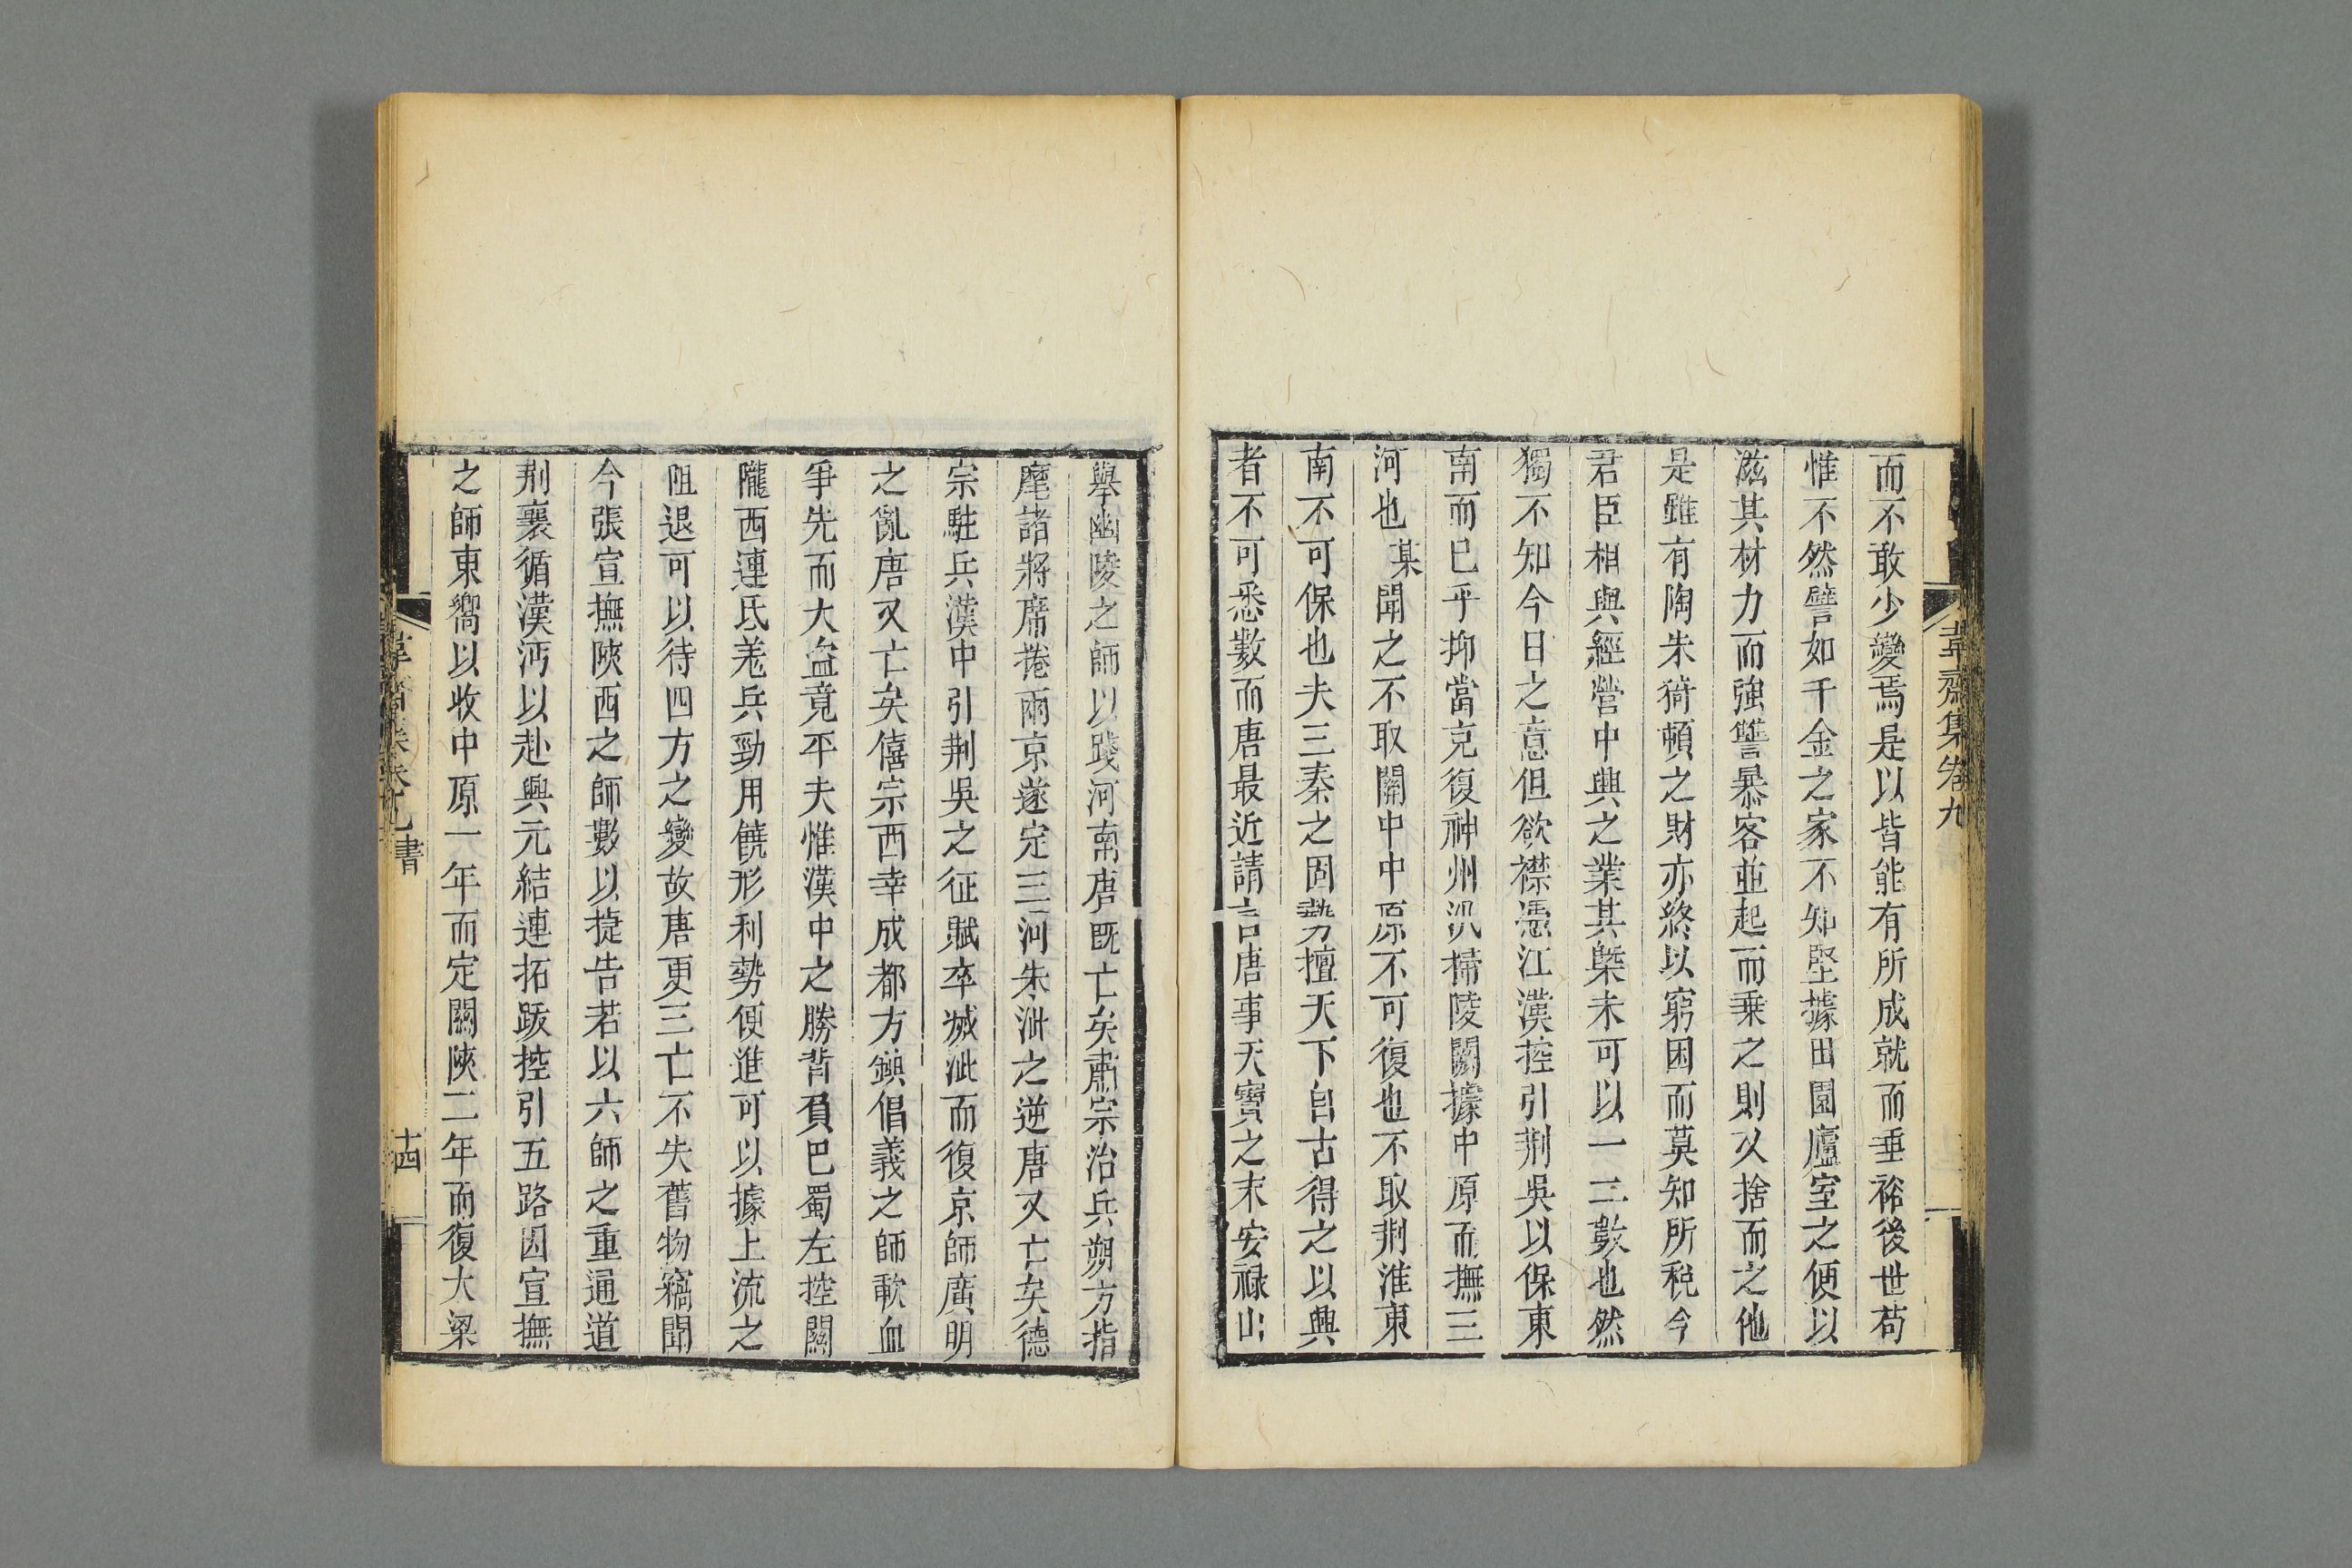 韋齋集卷九
而不敢少變焉是以皆能有所成就而垂裕後世苟
惟不然譬如千金之家不知堅據田園廬室之便以
滋其材力而強讐暴客並起而乗之則又捨而之他
是雖有陶朱猗頓之財亦終以窮困而莫知所稅今
君臣相與經營中興之業其槩未可以一二數也然
獨不知今日之意但欲襟憑江漢控引荆吳以保東
南而已乎抑當克復神州汎掃陵闕據中原而撫三
河也某聞之不取關中中原不可復也不取荆淮東
南不可保也夫三秦之固勢擅天下自古得之以興
者不可悉數而唐最近請言唐事天寶之末安祿山
舉幽陵之師以踐河南唐旣亡矣肅宗治兵朔方指
麾諸將席捲兩京遂定三河朱泚之逆唐又亡矣德
宗駐兵漢中引荆吳之征賦卒滅泚而復京師廣明
之亂唐又亡矣僖宗西幸成都方鎭倡義之師歃血
爭先而大盗竟平夫惟漢中之勝背負巴蜀左控關
隴西連氐羌兵勁用饒形利勢便進可以據上流之
阻退可以待四方之變故唐更三亡不失舊物竊聞
今張宣撫陝西之師數以㨗告若以六師之重通道
荆襄循漢沔以赴興元結連拓跋控引五路因宣撫
之師東嚮以收中原一年而定關陝二年而復大梁
韋齋集卷九 書
十四